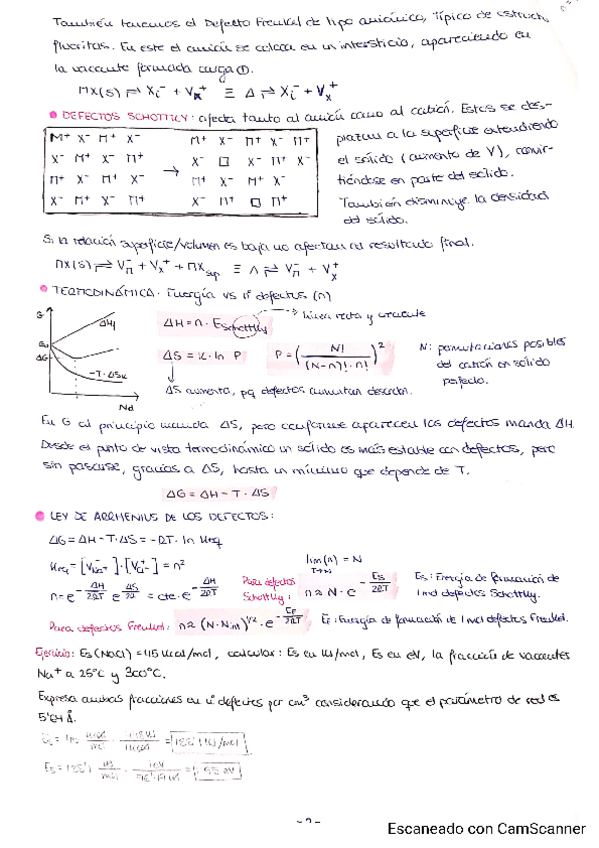 También tenemos el Defecto Frenkel de tipo aniónico, típico de estruct.
fluoritas. En este el anión se coloca en un intersticio, apareciendo en
la vacante formada carga ⊕.
MX(s) ⇌ Xi⁻ + Vx⁺ ≡ Δ ⇌ Xi⁻ + Vx⁺
DEFECTOS SCHOTTKY: afecta tanto al anión como al catión. Estos se des-
plazan a la superficie extendiendo
el sólido (aumento de V), convir-
tiéndose en parte del sólido.
También disminuye la densidad
del sólido.
M⁺ X⁻ M⁺ X⁻
X⁻ M⁺ X⁻ M⁺
M⁺ X⁻ M⁺ X⁻
X⁻ M⁺ X⁻ M⁺
→
M⁺ X⁻ M⁺ X⁻ M⁺
X⁻ □ X⁻ M⁺ X⁻
M⁺ X⁻ M⁺ X⁻
X⁻ M⁺ □ M⁺
Si la relación superficie/volumen es baja no afectan al resultado final.
MX(s) ⇌ VM⁻ + Vx⁺ + MXsup ≡ Δ ⇌ VM⁻ + Vx⁺
TERMODINÁMICA. Energía vs nº defectos (n)
G
ΔHf
G₀
ΔG
-T·ΔSc
Nd
ΔH = n · Eschottky
línea recta y creciente
ΔS = k · ln P
P = (N! / (N-n)! · n!)²
N: permutaciones posibles
del catión en sólido
perfecto.
ΔS aumenta, pq defectos aumentan desorden.
En G al principio manda ΔS, pero conforme aparecen los defectos manda ΔH.
Desde el punto de vista termodinámico un sólido es más estable con defectos, pero
sin pasarse, gracias a ΔS, hasta un mínimo que depende de T.
ΔG = ΔH - T · ΔS
LEY DE ARRHENIUS DE LOS DEFECTOS:
ΔG = ΔH - T·ΔS = -RT · ln Keq
Keq = [VNa⁻] · [VCl⁺] = n²
lim(n) = N
T→∞
n = e^(-ΔH/2RT) e^(ΔS/2R) = cte · e^(-ΔH/2RT)
Para defectos
Schottky:
n ≈ N · e^(-Es/2RT)
Es: Energía de formación de
1 mol defectos Schottky.
Para defectos Frenkel: n ≈ (N·Nint)^1/2 · e^(-EF/2RT) EF: Energía de formación de 1 mol defectos Frenkel.
Ejercicio: Es (NaCl) = 45 kcal/mol, calcular: Es en kJ/mol, Es en eV, la fracción de vacantes
Na⁺ a 25°C y 300°C.
Expresa ambas fracciones en nº defectos por cm³ considerando que el parámetro de red es
5'64 Å.
Escaneado con CamScanner